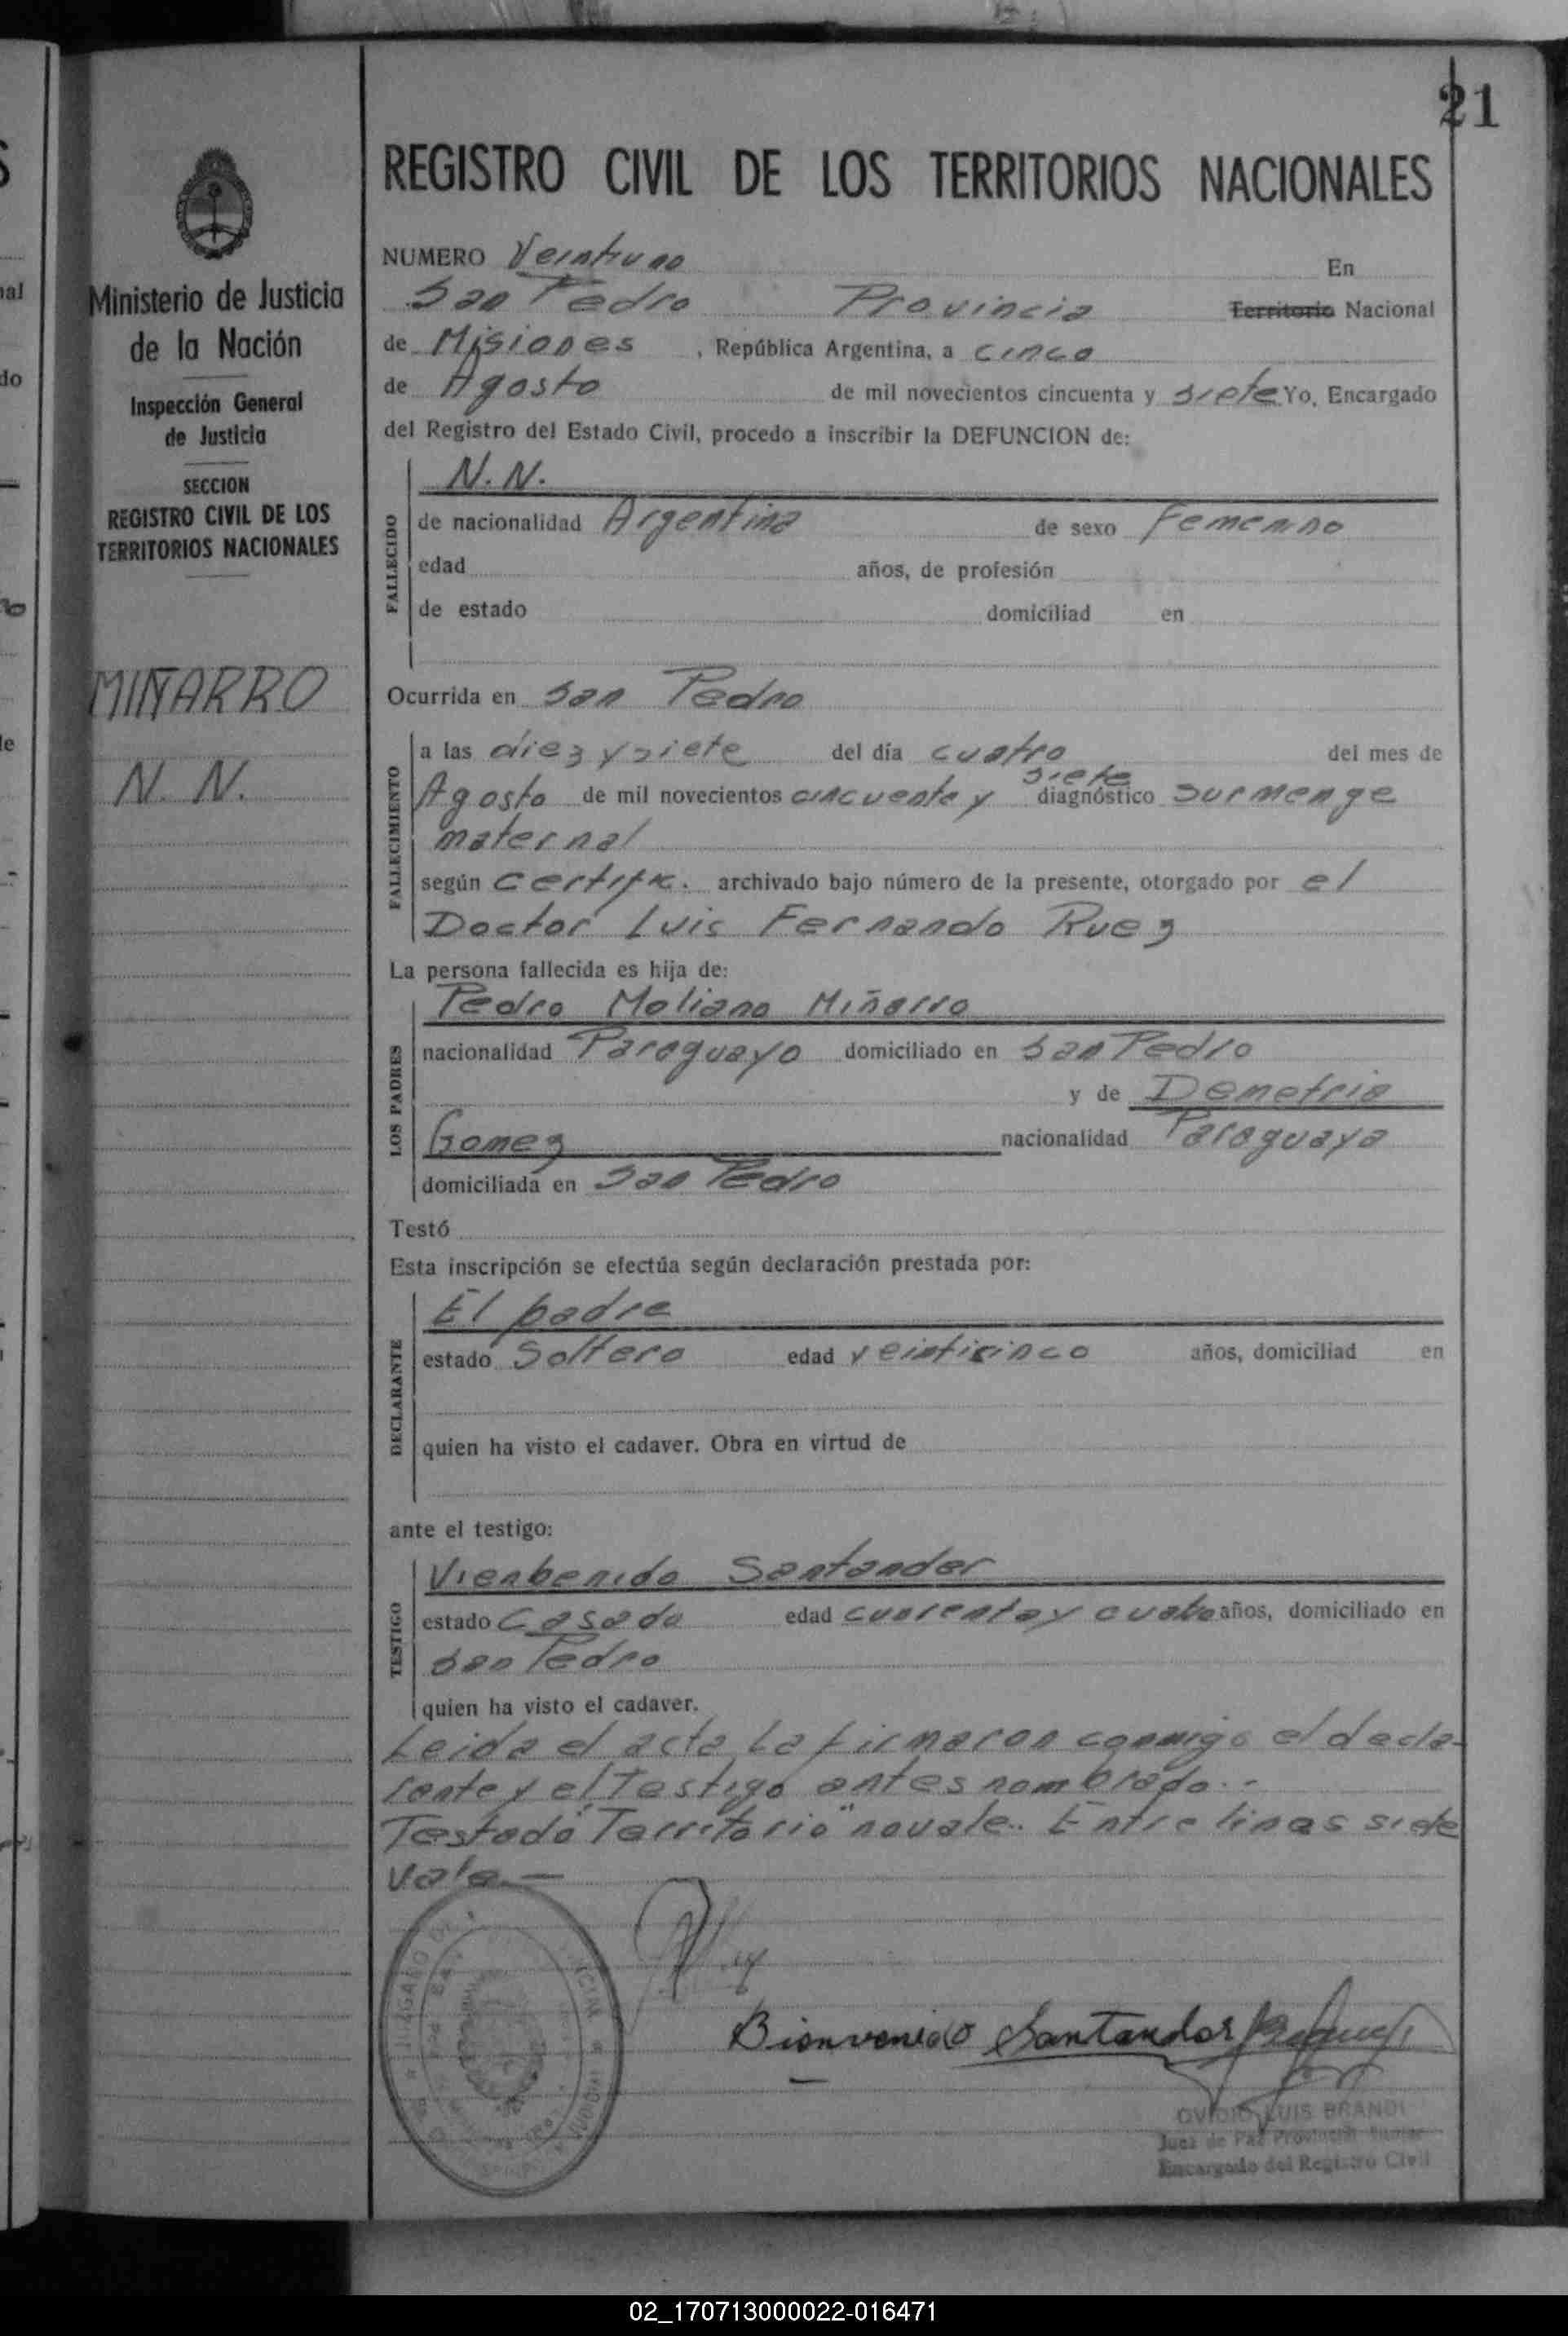 21
REGISTRO CIVIL DE LOS TERRITORIOS NACIONALES
Ministerio de Justicia
de la Nación
Inspección General
de Justicia
SECCION
REGISTRO CIVIL DE LOS
TERRITORIOS NACIONALES
MIÑARRO
N. N.
NUMERO Veintiuno En
San Pedro Provincia Territorio Nacional
de Misiones , República Argentina, a cinco
de Agosto de mil novecientos cincuenta y siete Yo, Encargado
del Registro del Estado Civil, procedo a inscribir la DEFUNCION de:
FALLECIDO
N. N.
de nacionalidad Argentina de sexo Femenino
edad años, de profesión
de estado domiciliad en
Ocurrida en San Pedro
FALLECIMIENTO
a las diez y siete del día cuatro del mes de
siete
Agosto de mil novecientos cincuenta y diagnóstico surmenge
maternal
según certific. archivado bajo número de la presente, otorgado por el
Doctor Luis Fernando Ruez
La persona fallecida es hija de:
LOS PADRES
Pedro Moliano Miñarro
nacionalidad Paraguayo domiciliado en San Pedro
y de Demetria
Gomez nacionalidad Paraguaya
domiciliada en San Pedro
Testó
Esta inscripción se efectúa según declaración prestada por:
DECLARANTE
El padre
estado Soltero edad veinticinco años, domiciliad en
quien ha visto el cadaver. Obra en virtud de
ante el testigo:
TESTIGO
Vienbenido Santander
estado Casado edad cuarenta y cuatro años, domiciliado en
San Pedro
quien ha visto el cadaver.
Leida el acta la firmaron conmigo el decla-
rante y el Testigo antes nombrado.-
Testado "Territorio" no vale. Entre lineas siete
vale.-
Bienvenido Santander
OVIDIO LUIS BRANDI
Juez de Paz Provincial
Encargado del Registro Civil
02_170713000022-016471